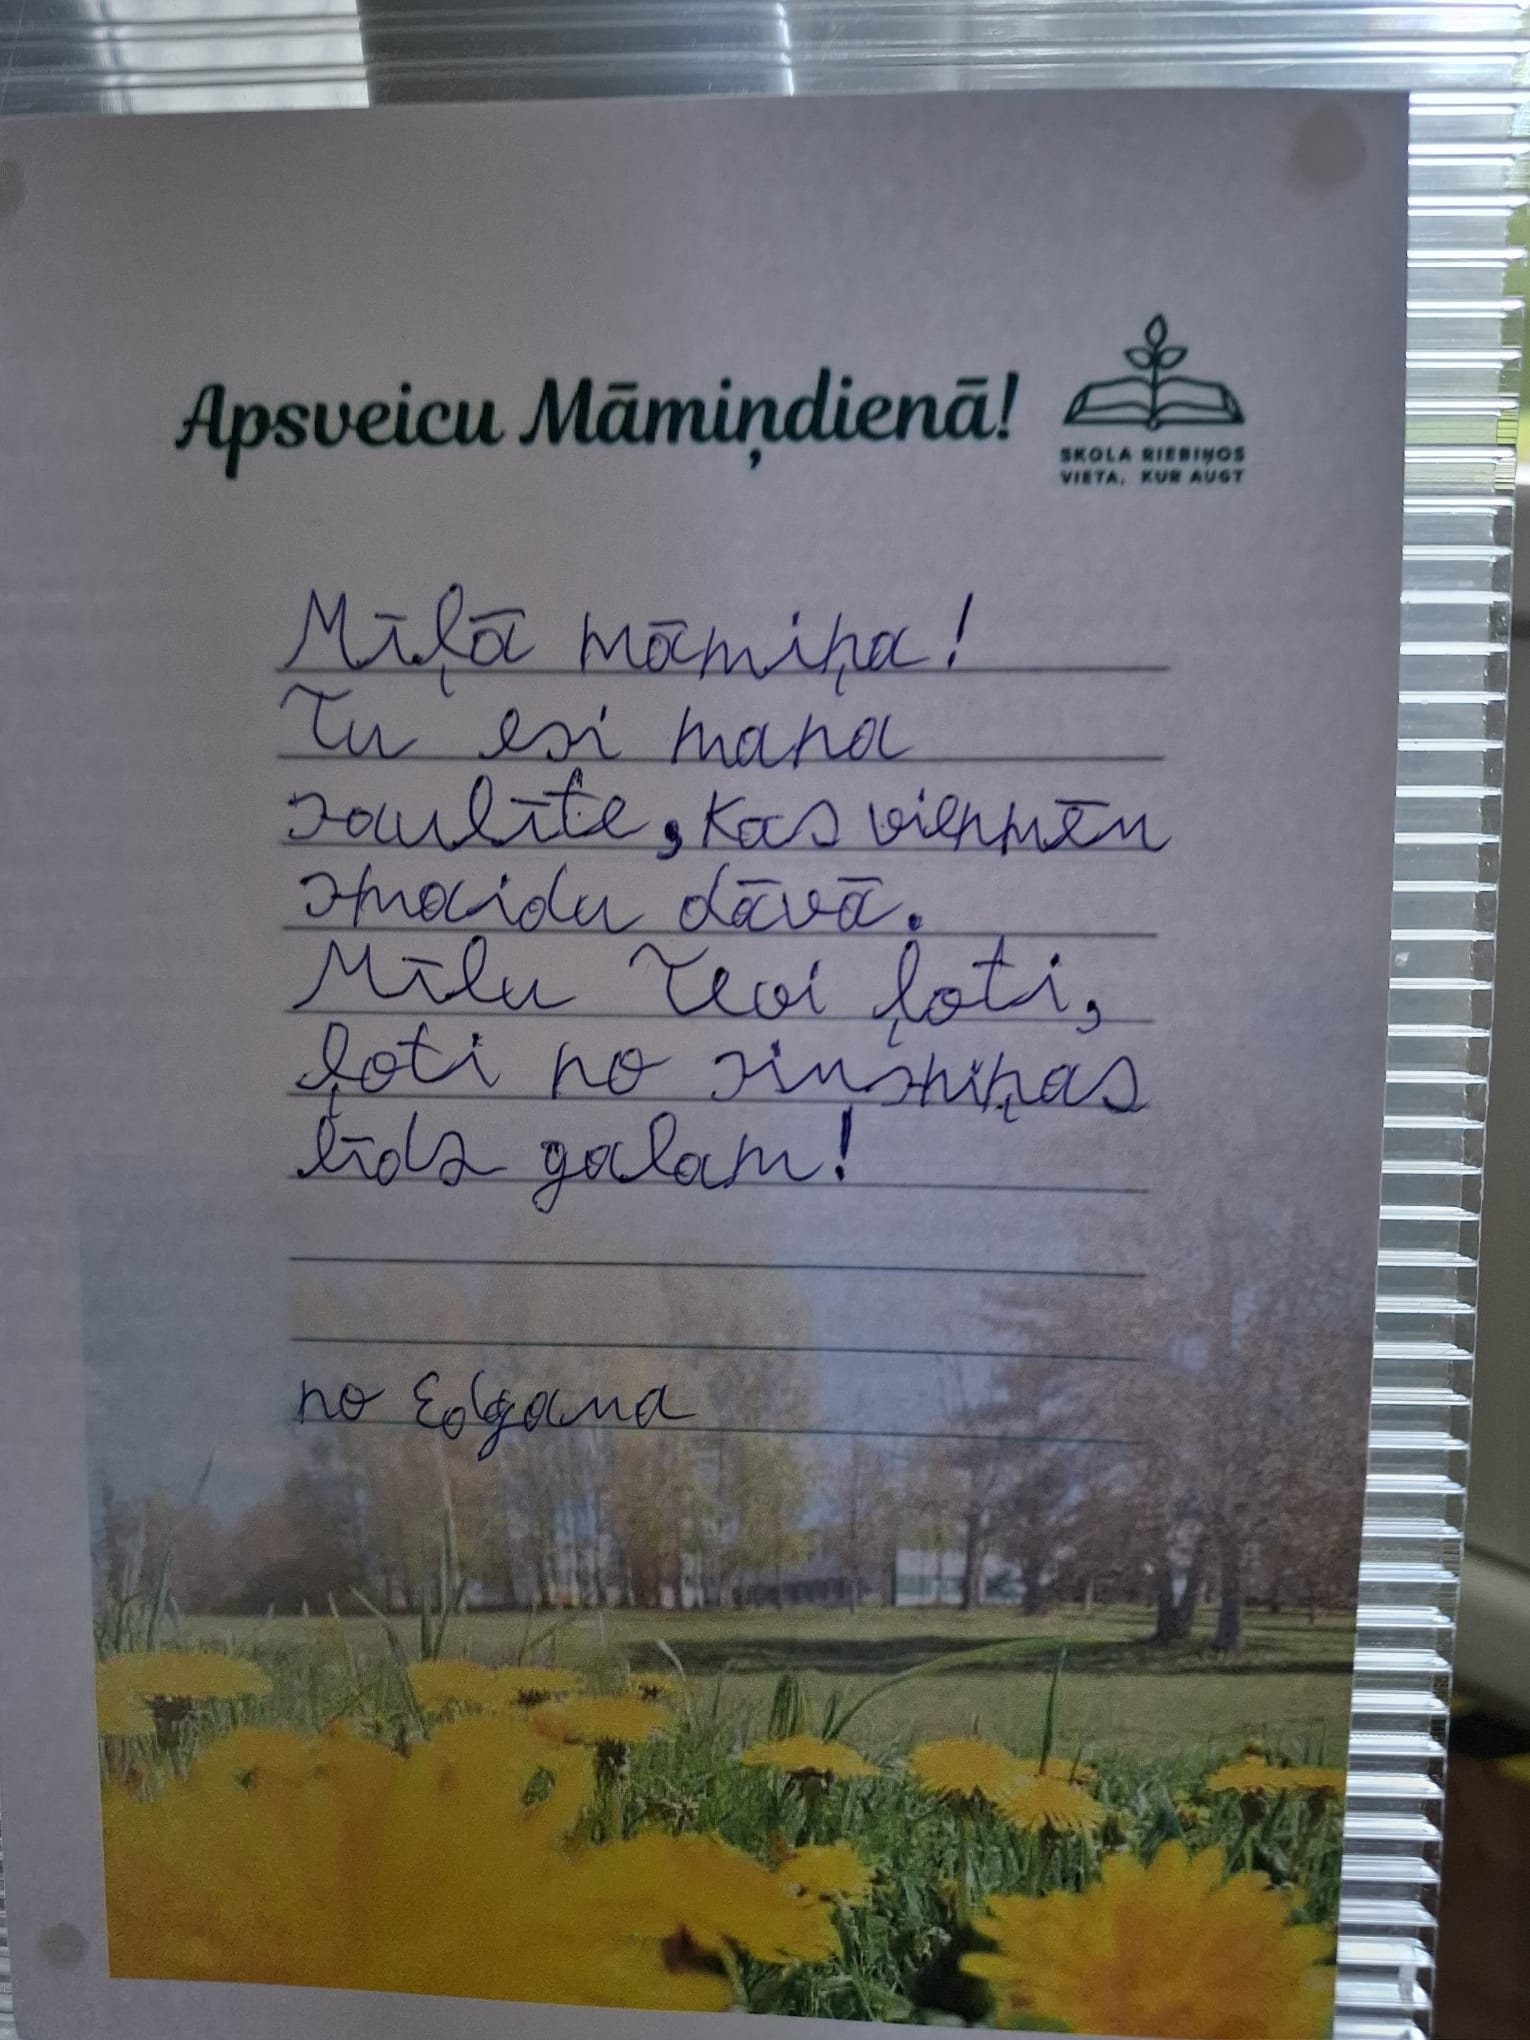 Apsveicu Māmiņdienā!
SKOLA RIEBIŅOS
VIETA, KUR AUGT
Mīļā māmiņa!
Tu esi mana
saulīte, kas vienmēr
smaidu dāvā.
Mīlu Tevi ļoti,
ļoti no sirsniņas
līdz galam!
no Edgara